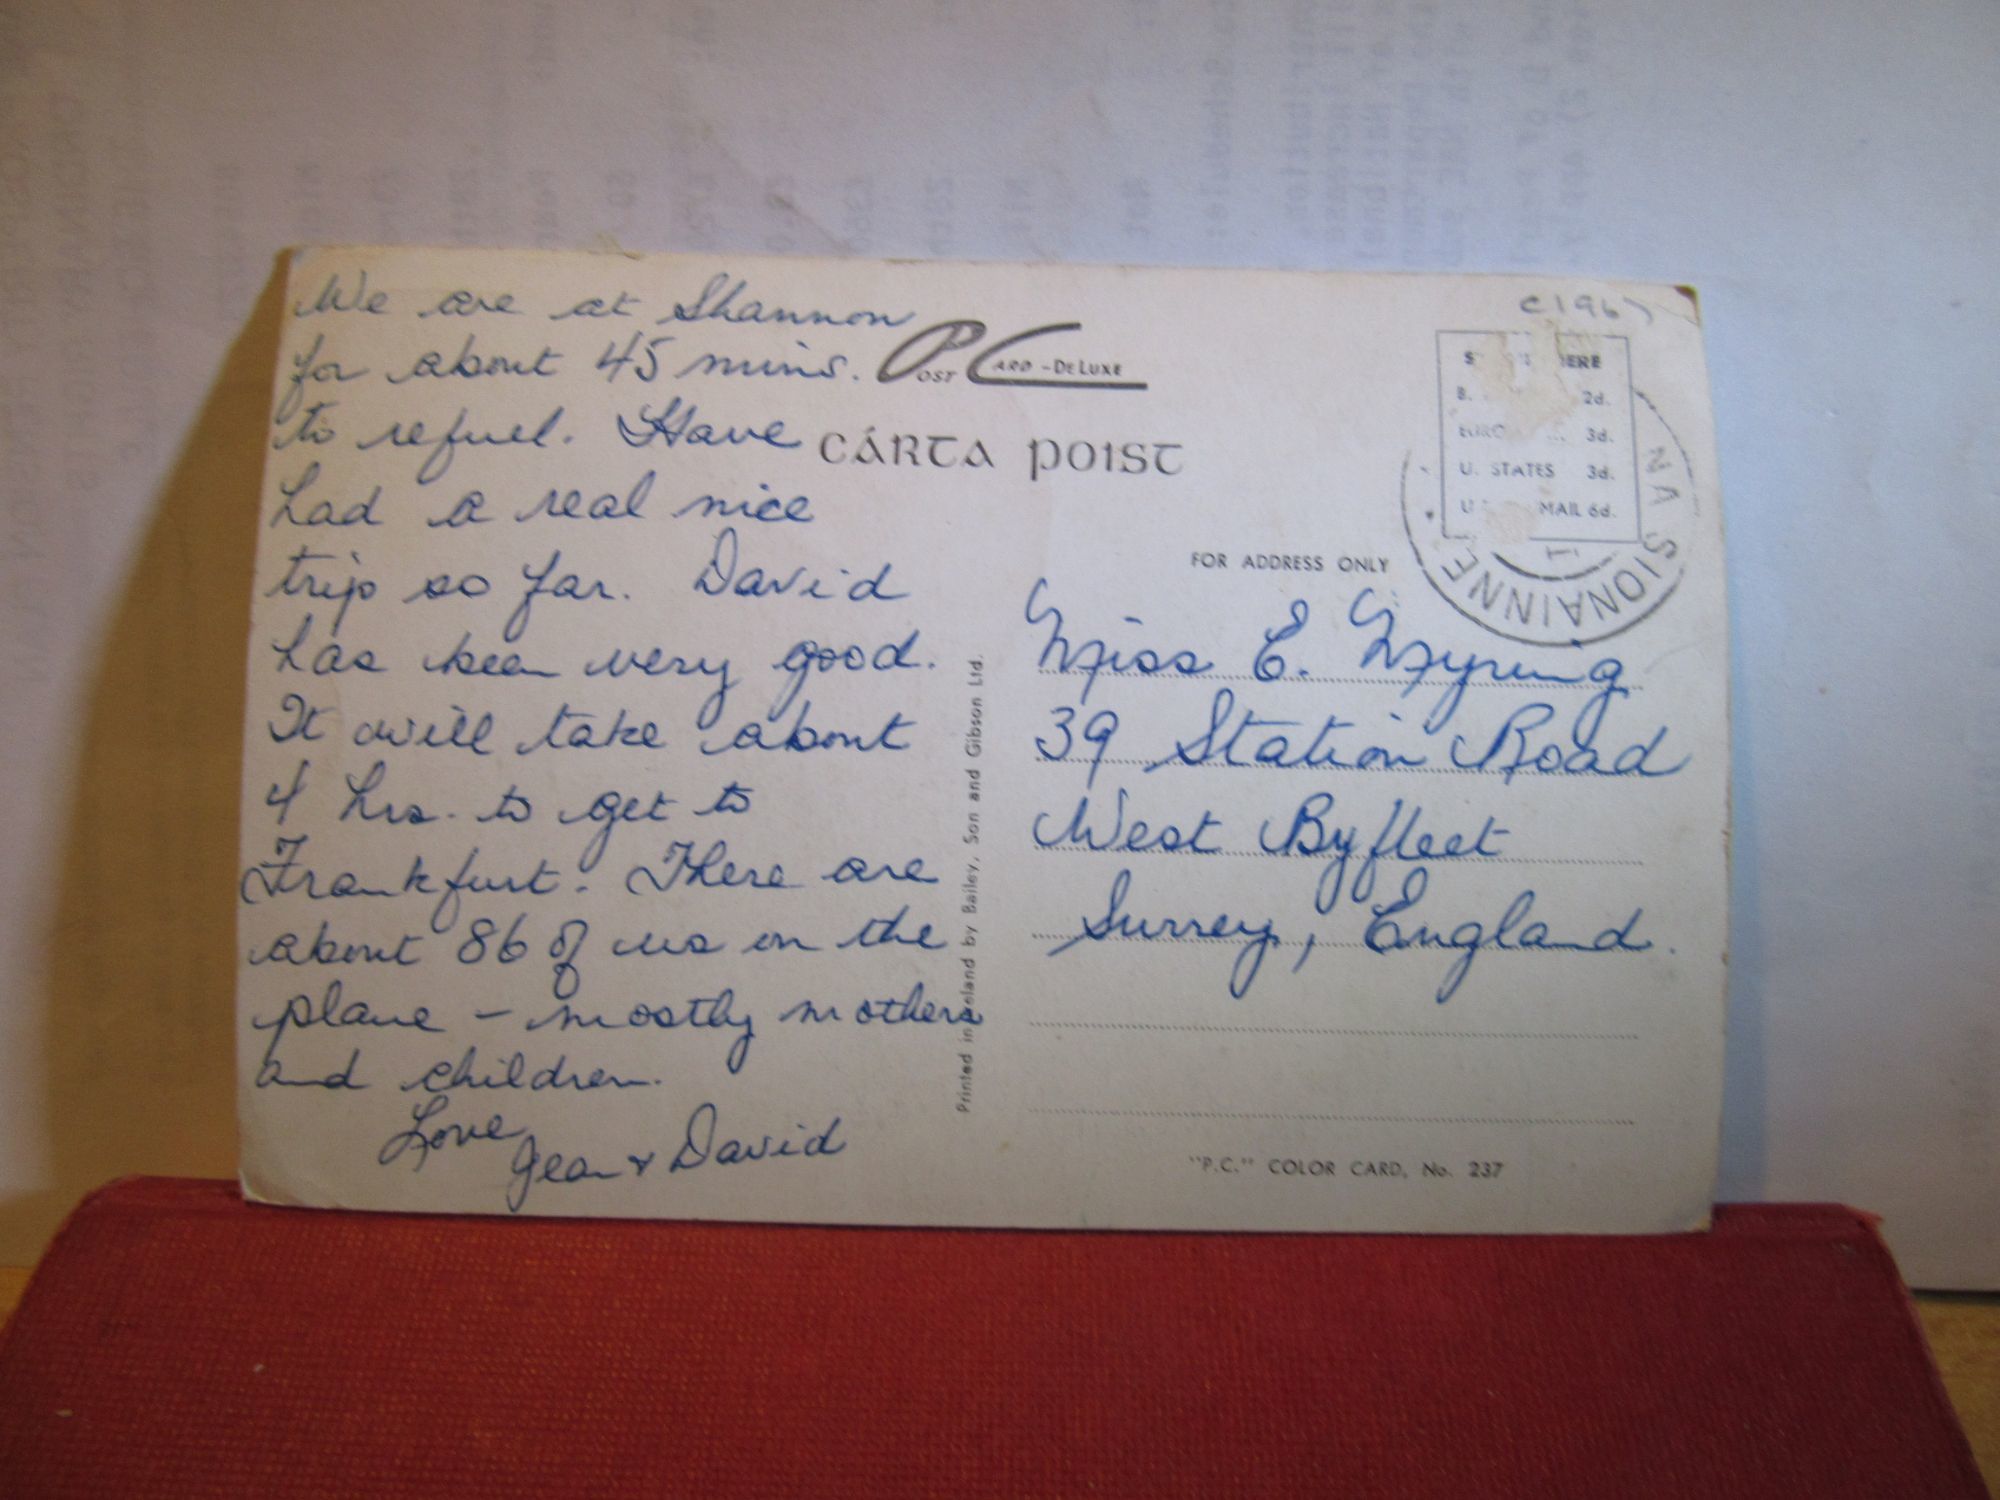 We are at Shannon
for about 45 mins.
to refuel. Have
had a real nice
trip so far. David
has been very good.
It will take about
4 hrs. to get to
Frankfurt. There are
about 86 of us on the
plane - mostly mothers
and children.
Love
Jean + David
POST CARD - DELUXE
CÁRTA POIST
Printed in Ireland by Bailey, Son and Gibson Ltd.
c1967
HERE
2d.
3d.
U. STATES 3d.
MAIL 6d.
NA SIONAINNE
FOR ADDRESS ONLY
Miss E.
39 Station Road
West Byfleet
Surrey, England.
"P.C." COLOR CARD, No. 237